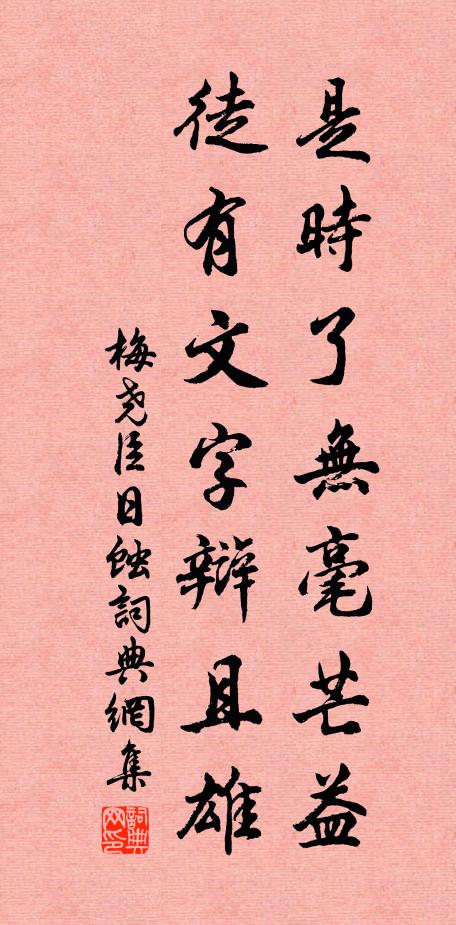 是時了無毫芒益
徒有文字辯且雄
梅堯臣日蝕詞典網集
詞典網印